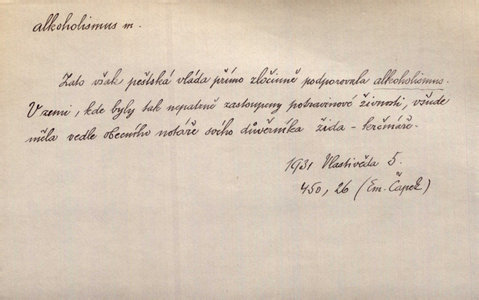 alkoholismus m.
Zato však pešťská vláda přímo zločinně podporovala alkoholismus.
V zemi, kde byly tak nepatrně zastoupeny potravinové živnosti, všude
měla vedle obecního notáře svého důvěrníka žida - krčmáře.
1931 Vlastivěda 5.
450, 26 (Em. Čapek)